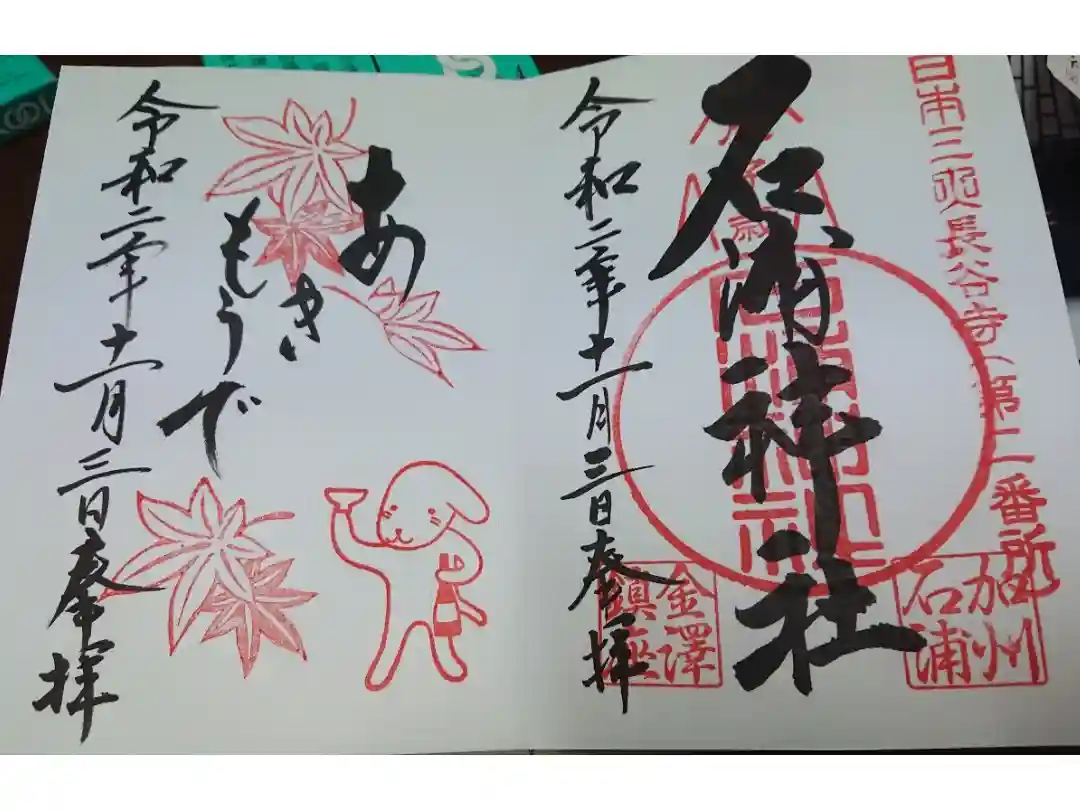 日本三興長谷寺第二番所
石浦神社
加州
石浦
金澤
鎮座
令和二年十一月三日奉拝
あきい
もうで
令和二年十一月三日奉拝